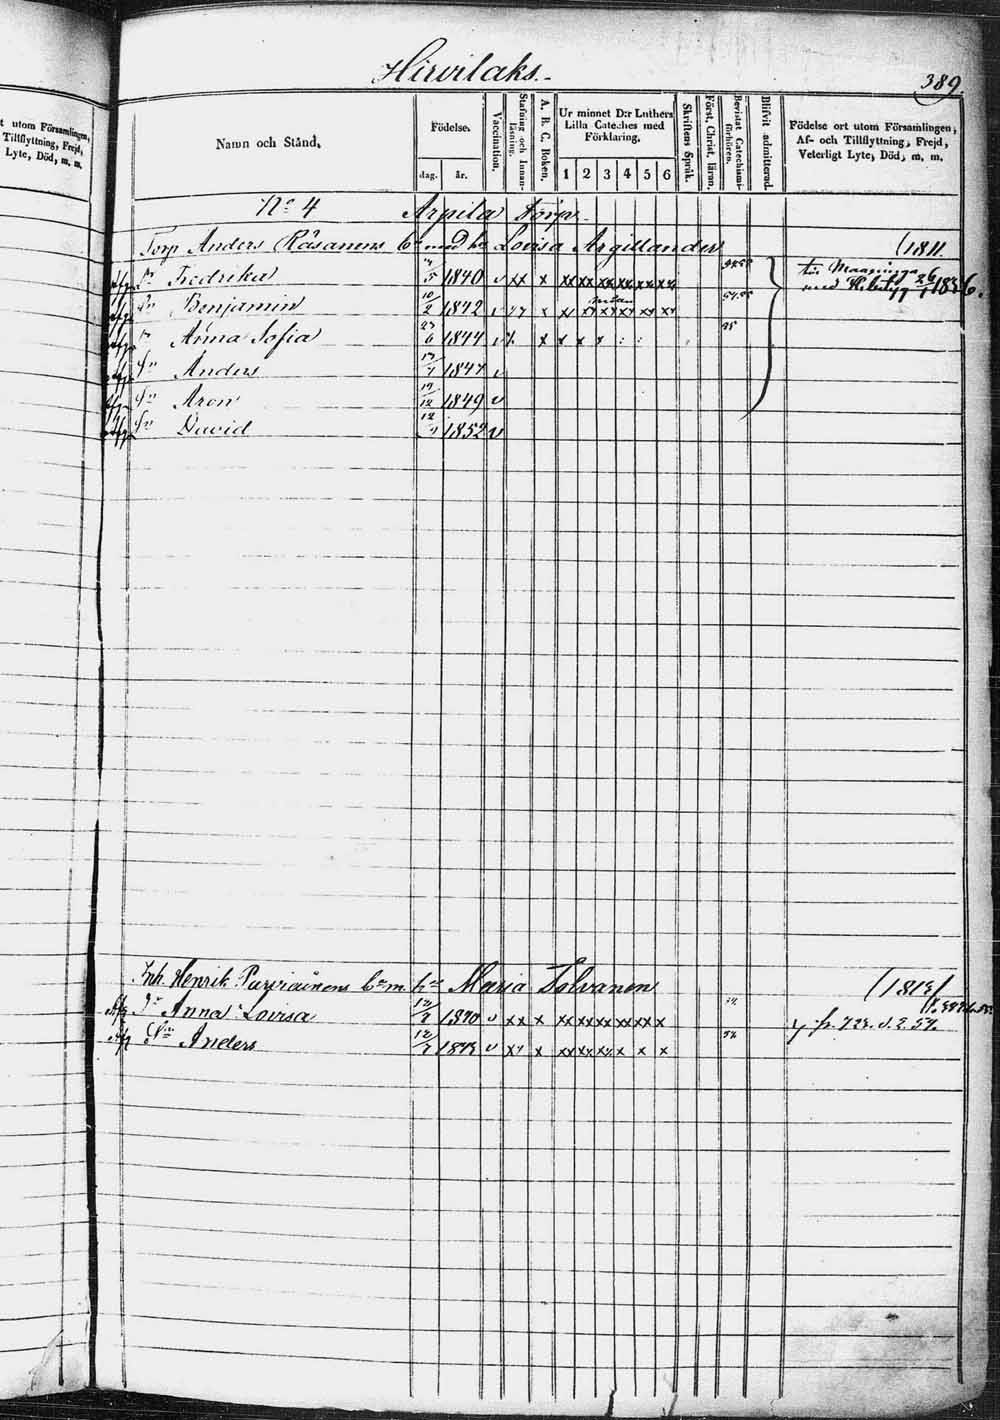 t utom Församlingen,
Tillflyttning, Frejd,
Lyte, Död, m. m.
Hirvilaks.
389.
Namn och Stånd,
Födelse.
dag. år.
Vaccination.
Stafning och Innanläsning.
A. B. C. Boken.
Ur minnet D:r Luthers
Lilla Cateches med
Förklaring.
1 2 3 4 5 6
Skriftens Språk.
Först. Christ. läran.
Bevistat Catechismi-förhören.
Blifvit admitterad.
Födelse ort utom Församlingen,
Af- och Tillflyttning, Frejd,
Veterligt Lyte, Död, m. m.
No 4 Arpila Torp.
Torp Anders Räsänens bn med hu Lovisa Argillander (1811.
Dr Fredrika 5 1840 v xx x xx xx xx xx xx xx
Sn Benjamin 10/2 1842 v
Dr Anna Sofia 23/6 1844 v x x x x
Sn Anders 1847 v
Sn Aron 12 1849 v
Sn David 12 1852 v
till Maaninga
26 1856.
Inh. Henrik Purviainens bn m. hu Maria Tolvanen (1813)
Afg Dr Anna Lovisa 1840 v xx x xx xx xx xx xx x
Afg Sn Anders 12 1843 v xx x xx xx xx x x x